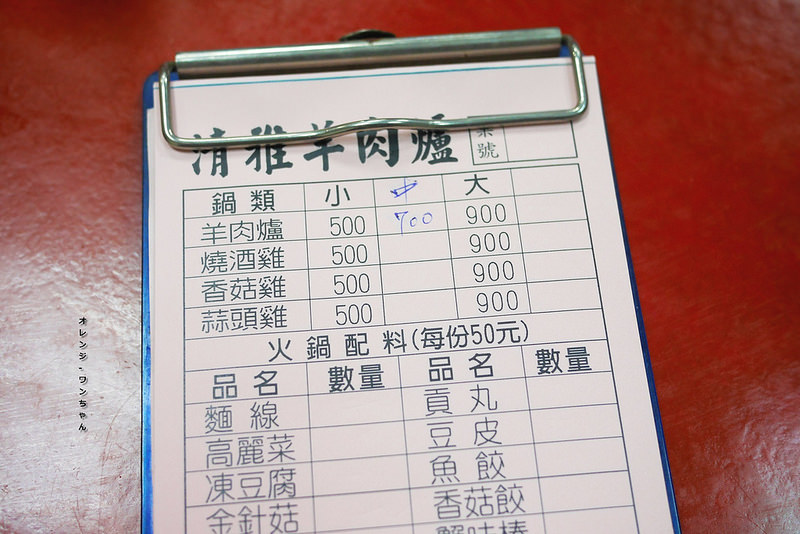 清雅羊肉爐
桌號
鍋類 小 中 大
羊肉爐 500 700 900
燒酒雞 500 900
香菇雞 500 900
蒜頭雞 500 900
火鍋配料(每份50元)
品名 數量 品名 數量
麵線 貢丸
高麗菜 豆皮
凍豆腐 魚餃
金針菇 香菇餃
蟹味棒
オレンジ・ワンちゃん